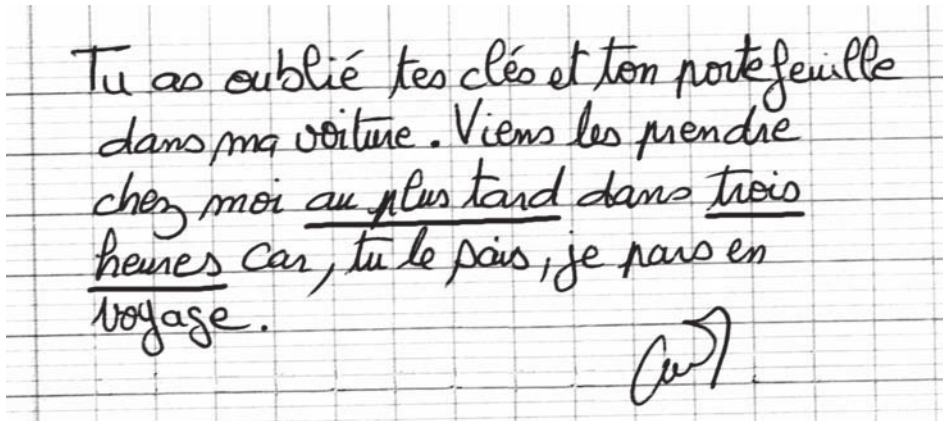 Tu as oublié tes clés et ton portefeuille
dans ma voiture. Viens les prendre
chez moi au plus tard dans trois
heures car, tu le sais, je pars en
voyage.